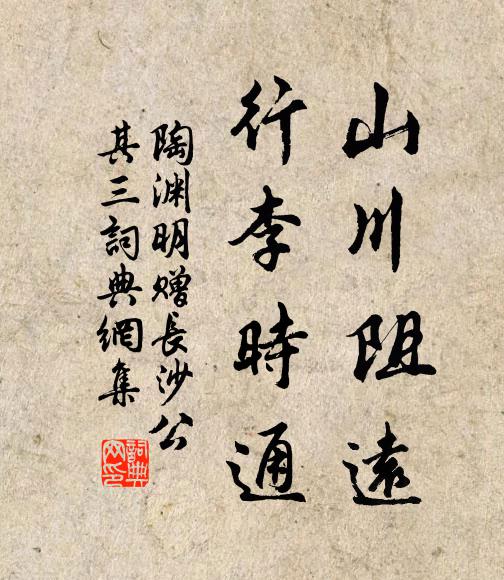 山川阻遠
行李時通
陶淵明贈長沙公
其三詞典網集
詞典
網